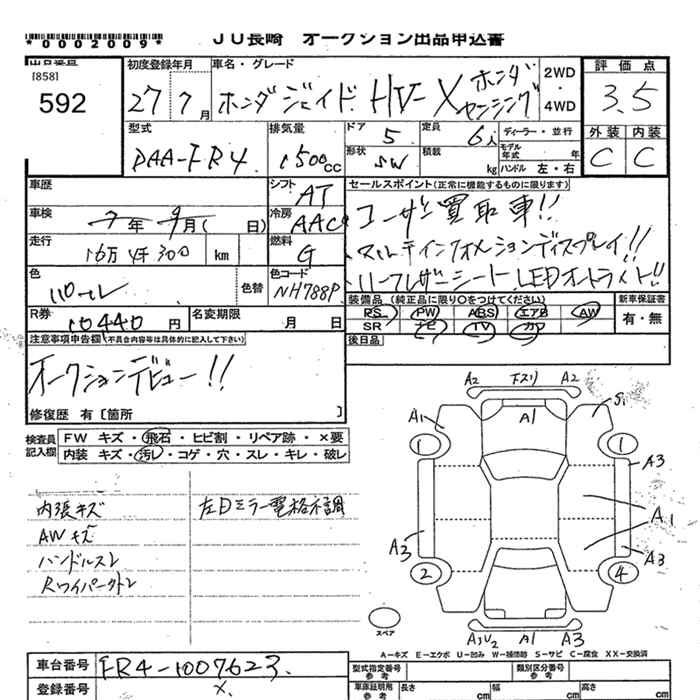 *0002009*
JU長崎 オークション出品申込書
出品番号
[858]
592
初度登録年月
27 7月
車名・グレード
ホンダジェイド HV-X ホンダセンシング
2WD・4WD
評価点
3.5
外装 内装
C C
型式
DAA-FR4
排気量
1500cc
ドア
5
形状
SW
定員
6人
積載
kg
ディーラー・並行
モデル年式 年
ハンドル 左・右
車歴
シフト
AT
セールスポイント(正常に機能するものに限ります)
ユーザー買取車!!
マルチインフォメーションディスプレイ!!
ハーフレザーシート LEDオートライト!!
車検
7年9月( 日)
冷房
AAC
走行
16万4千300 km
燃料
G
色
パール
色替
色コード
NH788P
装備品(純正品に限り○をつけてください)
PS PW ABS エアB AW
SR ナビ TV カワ
新車保証書
有・無
R券
10440円
名変期限
月 日
後日品
注意事項申告欄(不具合内容等は具体的に記入して下さい)
オークションデビュー!!
修復歴 有〔箇所 〕
検査員記入欄
FW キズ・飛石・ヒビ割・リペア跡・×要
内装 キズ・汚レ・コゲ・穴・スレ・キレ・破レ
内張キズ
AWキズ
ハンドルスレ
Rワイパークトレ
左Dミラー電格不調
A2 下スリ A2
A1 A1 S1
1 1
A3
A1
A3 A3
2 4
スペア
A3U2 A1 A3
A-キズ E-エクボ U-凹み W-補修跡 S-サビ C-腐食 XX-交換済
車台番号
FR4-1007623
登録番号
×
型式指定番号 参考
類別区分番号 参考
車庫証明用 参考
長さ cm
幅 cm
高さ cm